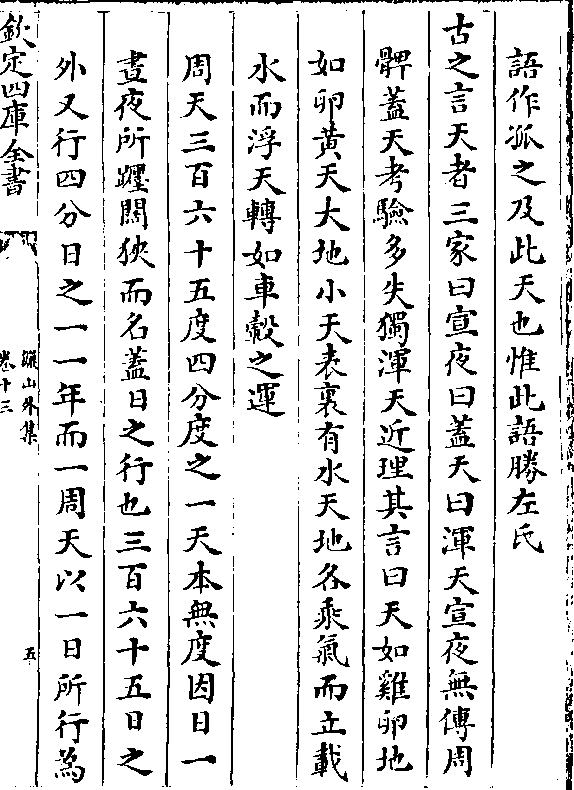 語作孤之及此天也惟此語勝左氏
古之言天者三家曰宣夜曰蓋天曰渾天宣夜無傳周
髀蓋天考驗多失獨渾天近理其言曰天如雞卵地
如卵黃天大地小天表裏有水天地各乘氣而立載
水而浮天轉如車轂之運
周天三百六十五度四分度之一天本無度因日一
晝夜所躔闊狹而名蓋日之行也三百六十五日之
外又行四分日之一一年而一周天以一日所行為
欽定四庫全書
山外集
卷十三
五